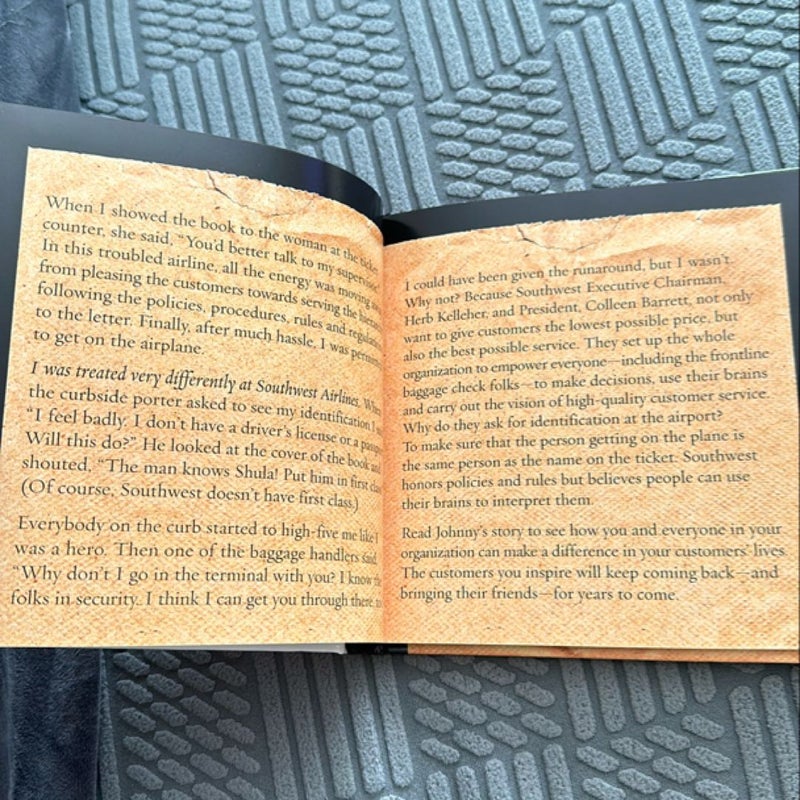 When I showed the book to the woman at the ticket
counter, she said, "You'd better talk to my supervisor."
In this troubled airline, all the energy was moving
from pleasing the customers towards serving the
following the policies, procedures, rules and regulations
to the letter. Finally, after much hassle, I was
to get on the airplane.
I was treated very differently at Southwest Airlines. When
the curbside porter asked to see my identification I
"I feel badly. I don't have a driver's license or a
Will this do?" He looked at the cover of the book and
shouted, "The man knows Shula! Put him in first
(Of course, Southwest doesn't have first class.)
Everybody on the curb started to high-five me like I
was a hero. Then one of the baggage handlers said,
"Why don't I go in the terminal with you? I know the
folks in security. I think I can get you through there,
I could have been given the runaround, but I wasn't.
Why not? Because Southwest Executive Chairman,
Herb Kelleher, and President, Colleen Barrett, not only
want to give customers the lowest possible price, but
also the best possible service. They set up the whole
organization to empower everyone—including the frontline
baggage check folks—to make decisions, use their brains
and carry out the vision of high-quality customer service.
Why do they ask for identification at the airport?
To make sure that the person getting on the plane is
the same person as the name on the ticket. Southwest
honors policies and rules but believes people can use
their brains to interpret them.
Read Johnny's story to see how you and everyone in your
organization can make a difference in your customers' lives.
The customers you inspire will keep coming back—and
bringing their friends—for years to come.